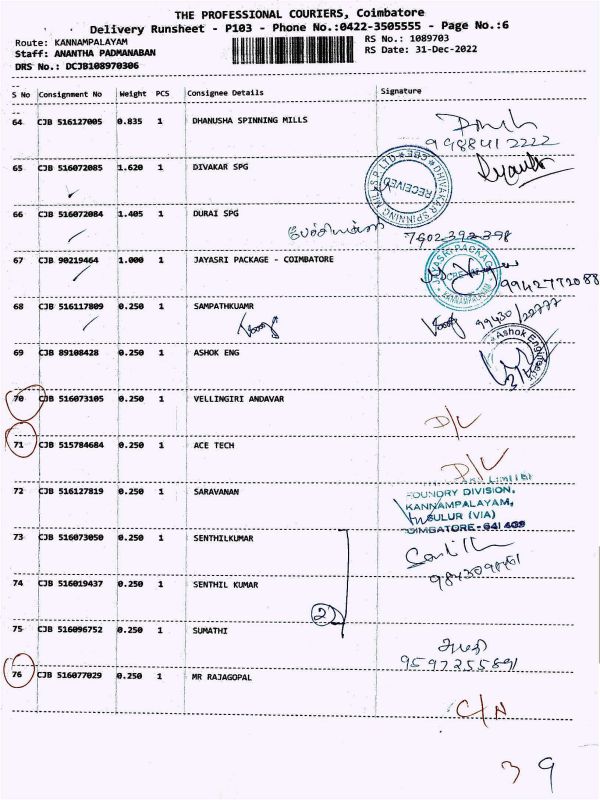 THE PROFESSIONAL COURIERS, Coimbatore
Delivery Runsheet - P103 - Phone No.:0422-3505555 - Page No.:6
Route: KANNAMPALAYAM RS No.: 1089703
Staff: ANANTHA PADMANABAN RS Date: 31-Dec-2022
DRS No.: DCJB108970306
S No Consignment No Weight PCS Consignee Details Signature
64 CJB 516127005 0.835 1 DHANUSHA SPINNING MILLS
9988412222
65 CJB 516072085 1.620 1 DIVAKAR SPG
DHIVAKAR SPINNING MILLS P LTD
RECEIVED
66 CJB 516072084 1.405 1 DURAI SPG
7602392398
67 CJB 90219464 1.000 1 JAYASRI PACKAGE - COIMBATORE
JAYASRI PACKAGE
CBE
KANNAMPALAYAM
9942772088
68 CJB 516117809 0.250 1 SAMPATHKUAMR
99430/22777
69 CJB 89108428 0.250 1 ASHOK ENG
Ashok Engineers
70 CJB 516073105 0.250 1 VELLINGIRI ANDAVAR
D/L
71 CJB 515784684 0.250 1 ACE TECH
D/L
72 CJB 516127819 0.250 1 SARAVANAN
LIMITED
FOUNDRY DIVISION,
KANNAMPALAYAM,
SULUR (VIA)
COIMBATORE-641 402
73 CJB 516073050 0.250 1 SENTHILKUMAR
74 CJB 516019437 0.250 1 SENTHIL KUMAR
2
75 CJB 516096752 0.250 1 SUMATHI
9597255891
76 CJB 516077029 0.250 1 MR RAJAGOPAL
C/N
39